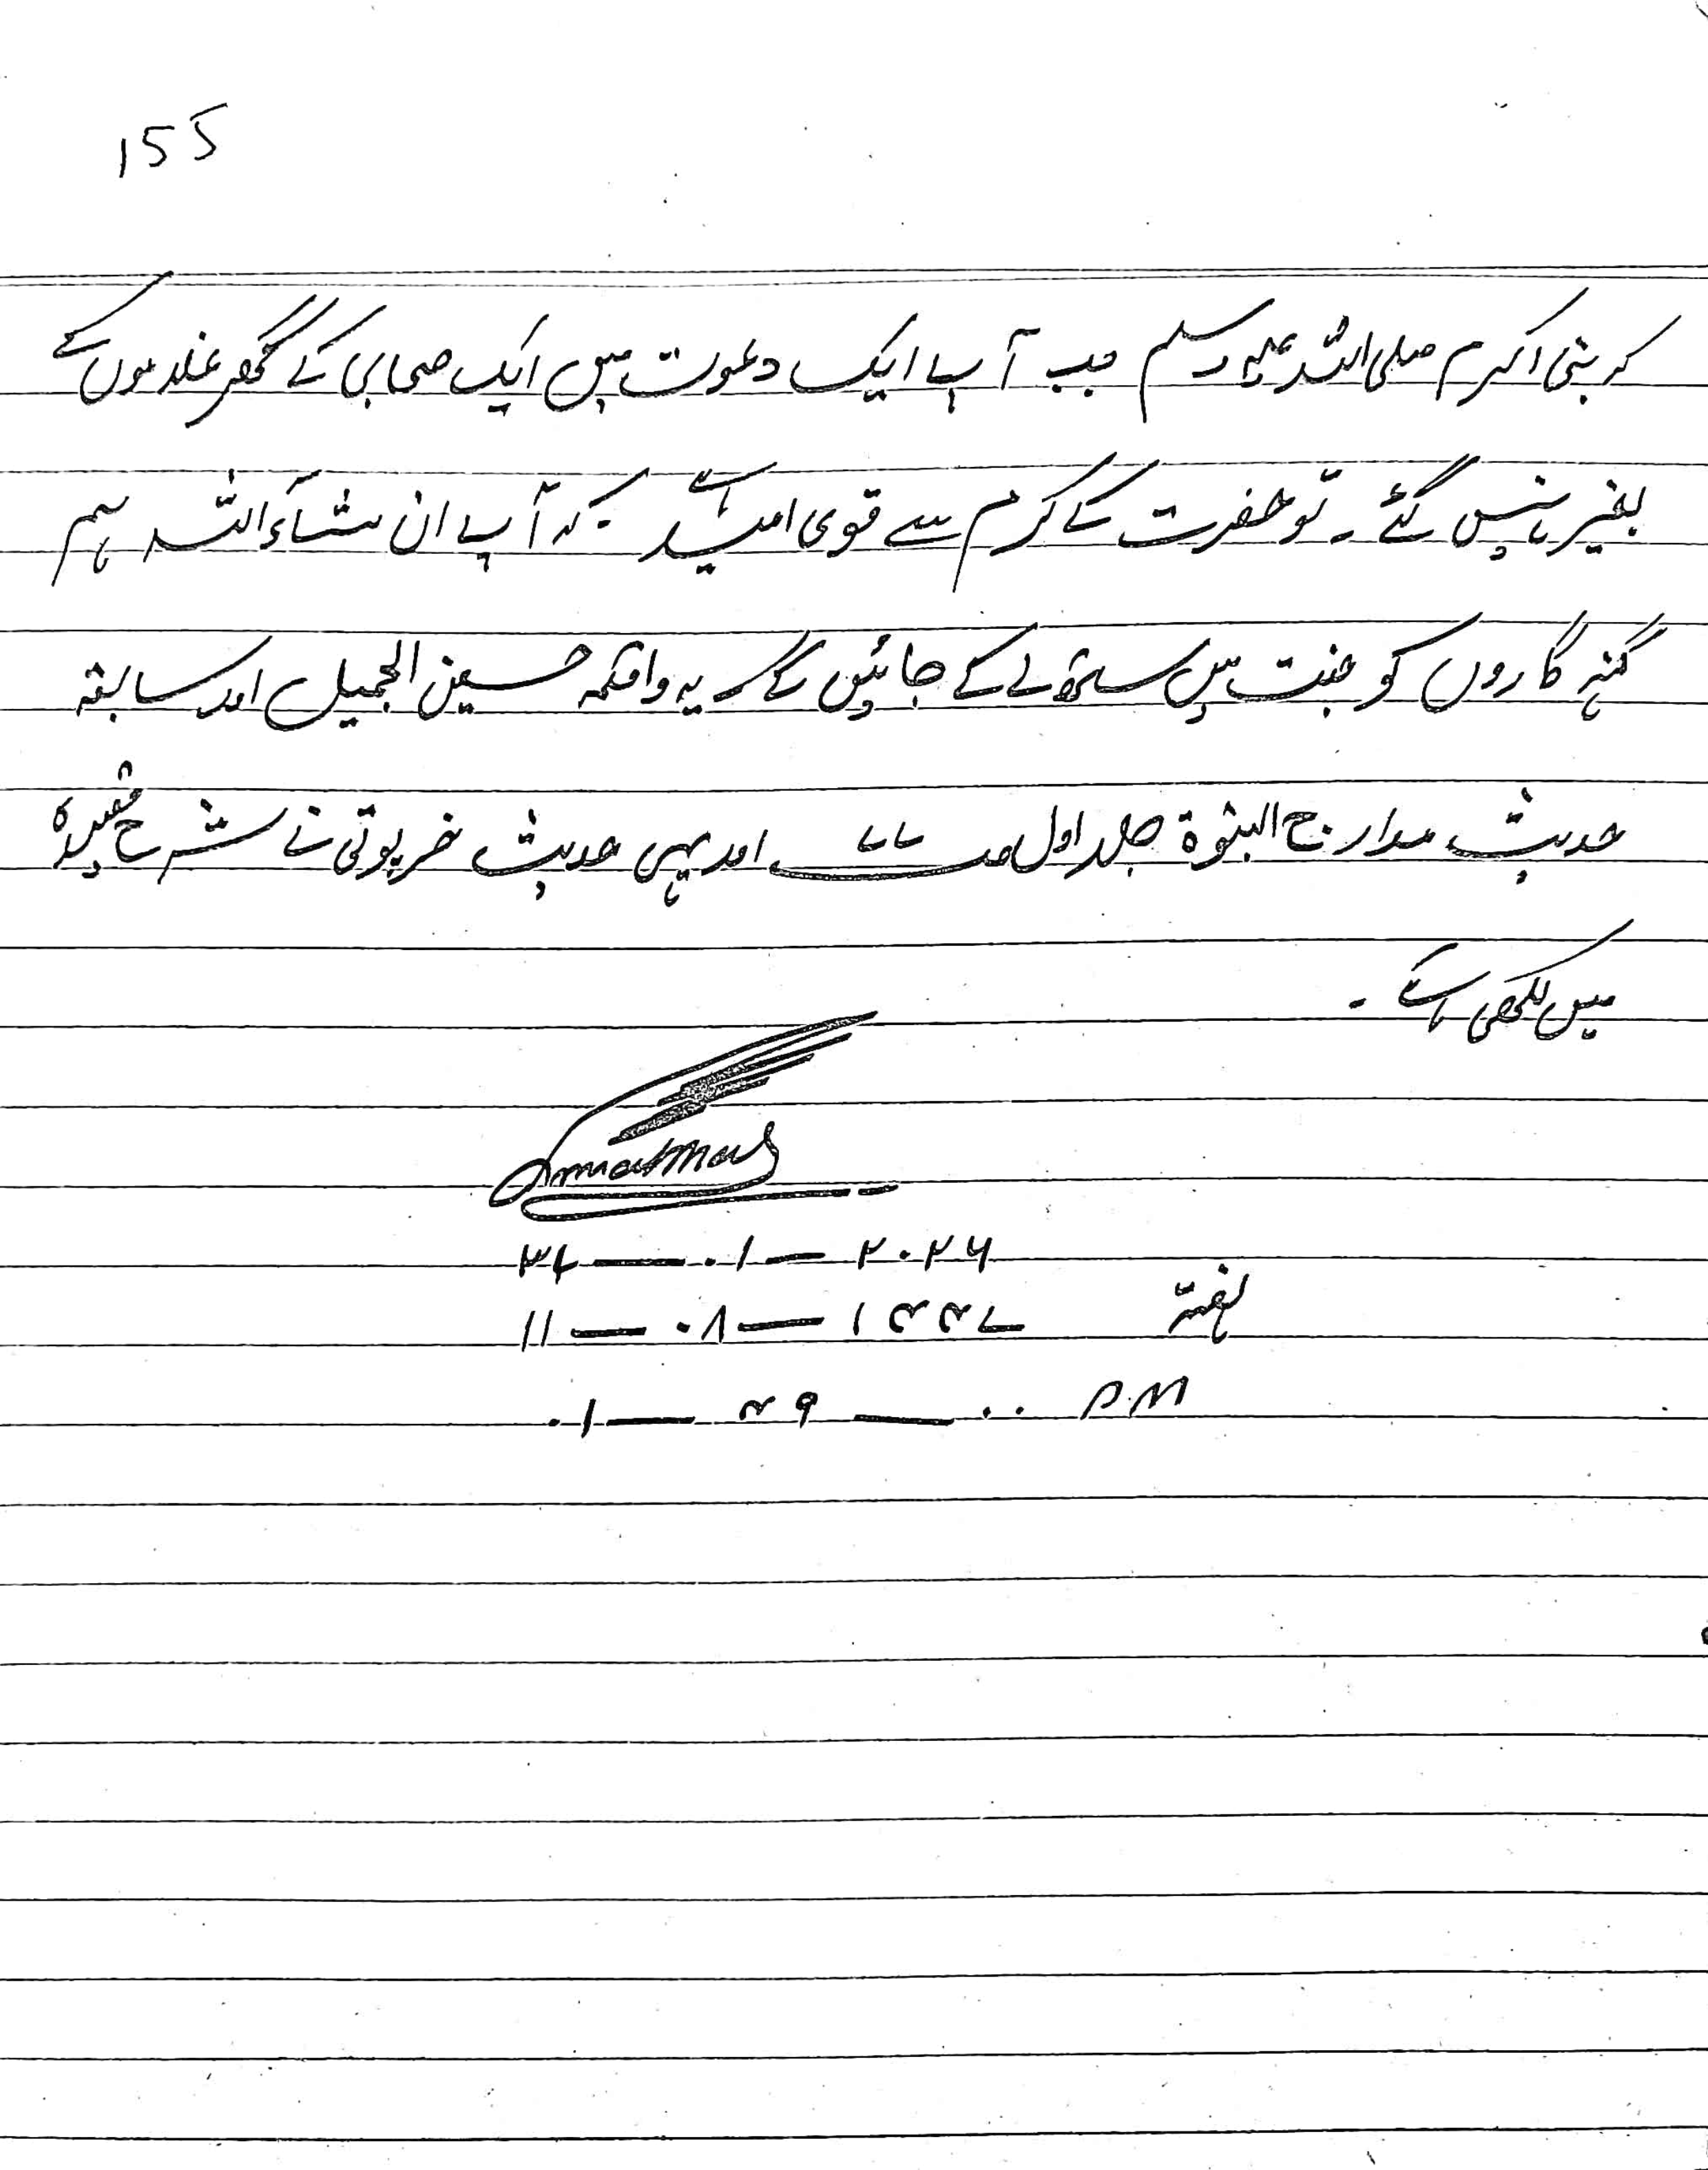 155
کہ نبی اکرم صلی اللہ علیہ وسلم جب آپ ایک دعوت میں ایک صحابی کے گھر غلاموں کے
بغیر نہیں گئے۔ تو حضرت کے کرم سے قوی امید ہے۔ کہ آپ ان شآء اللہ ہم
گنہگاروں کو جنت میں ساتھ لے کے جائیں گے۔ یہ واقعہ حسین الجمیل اور سابقہ
حدیث مدارج النبوۃ جلد اول صـ اور یہی حدیث خرپوتی نے شرح قصیدہ
میں لکھی ہے۔
۳۱ — ۰۱ — ۲۰۲۶
۱۱ — ۰۸ — ۱۴۴۷ ہفتہ
۰۱ — ۴۹ — ۰۰ P.M